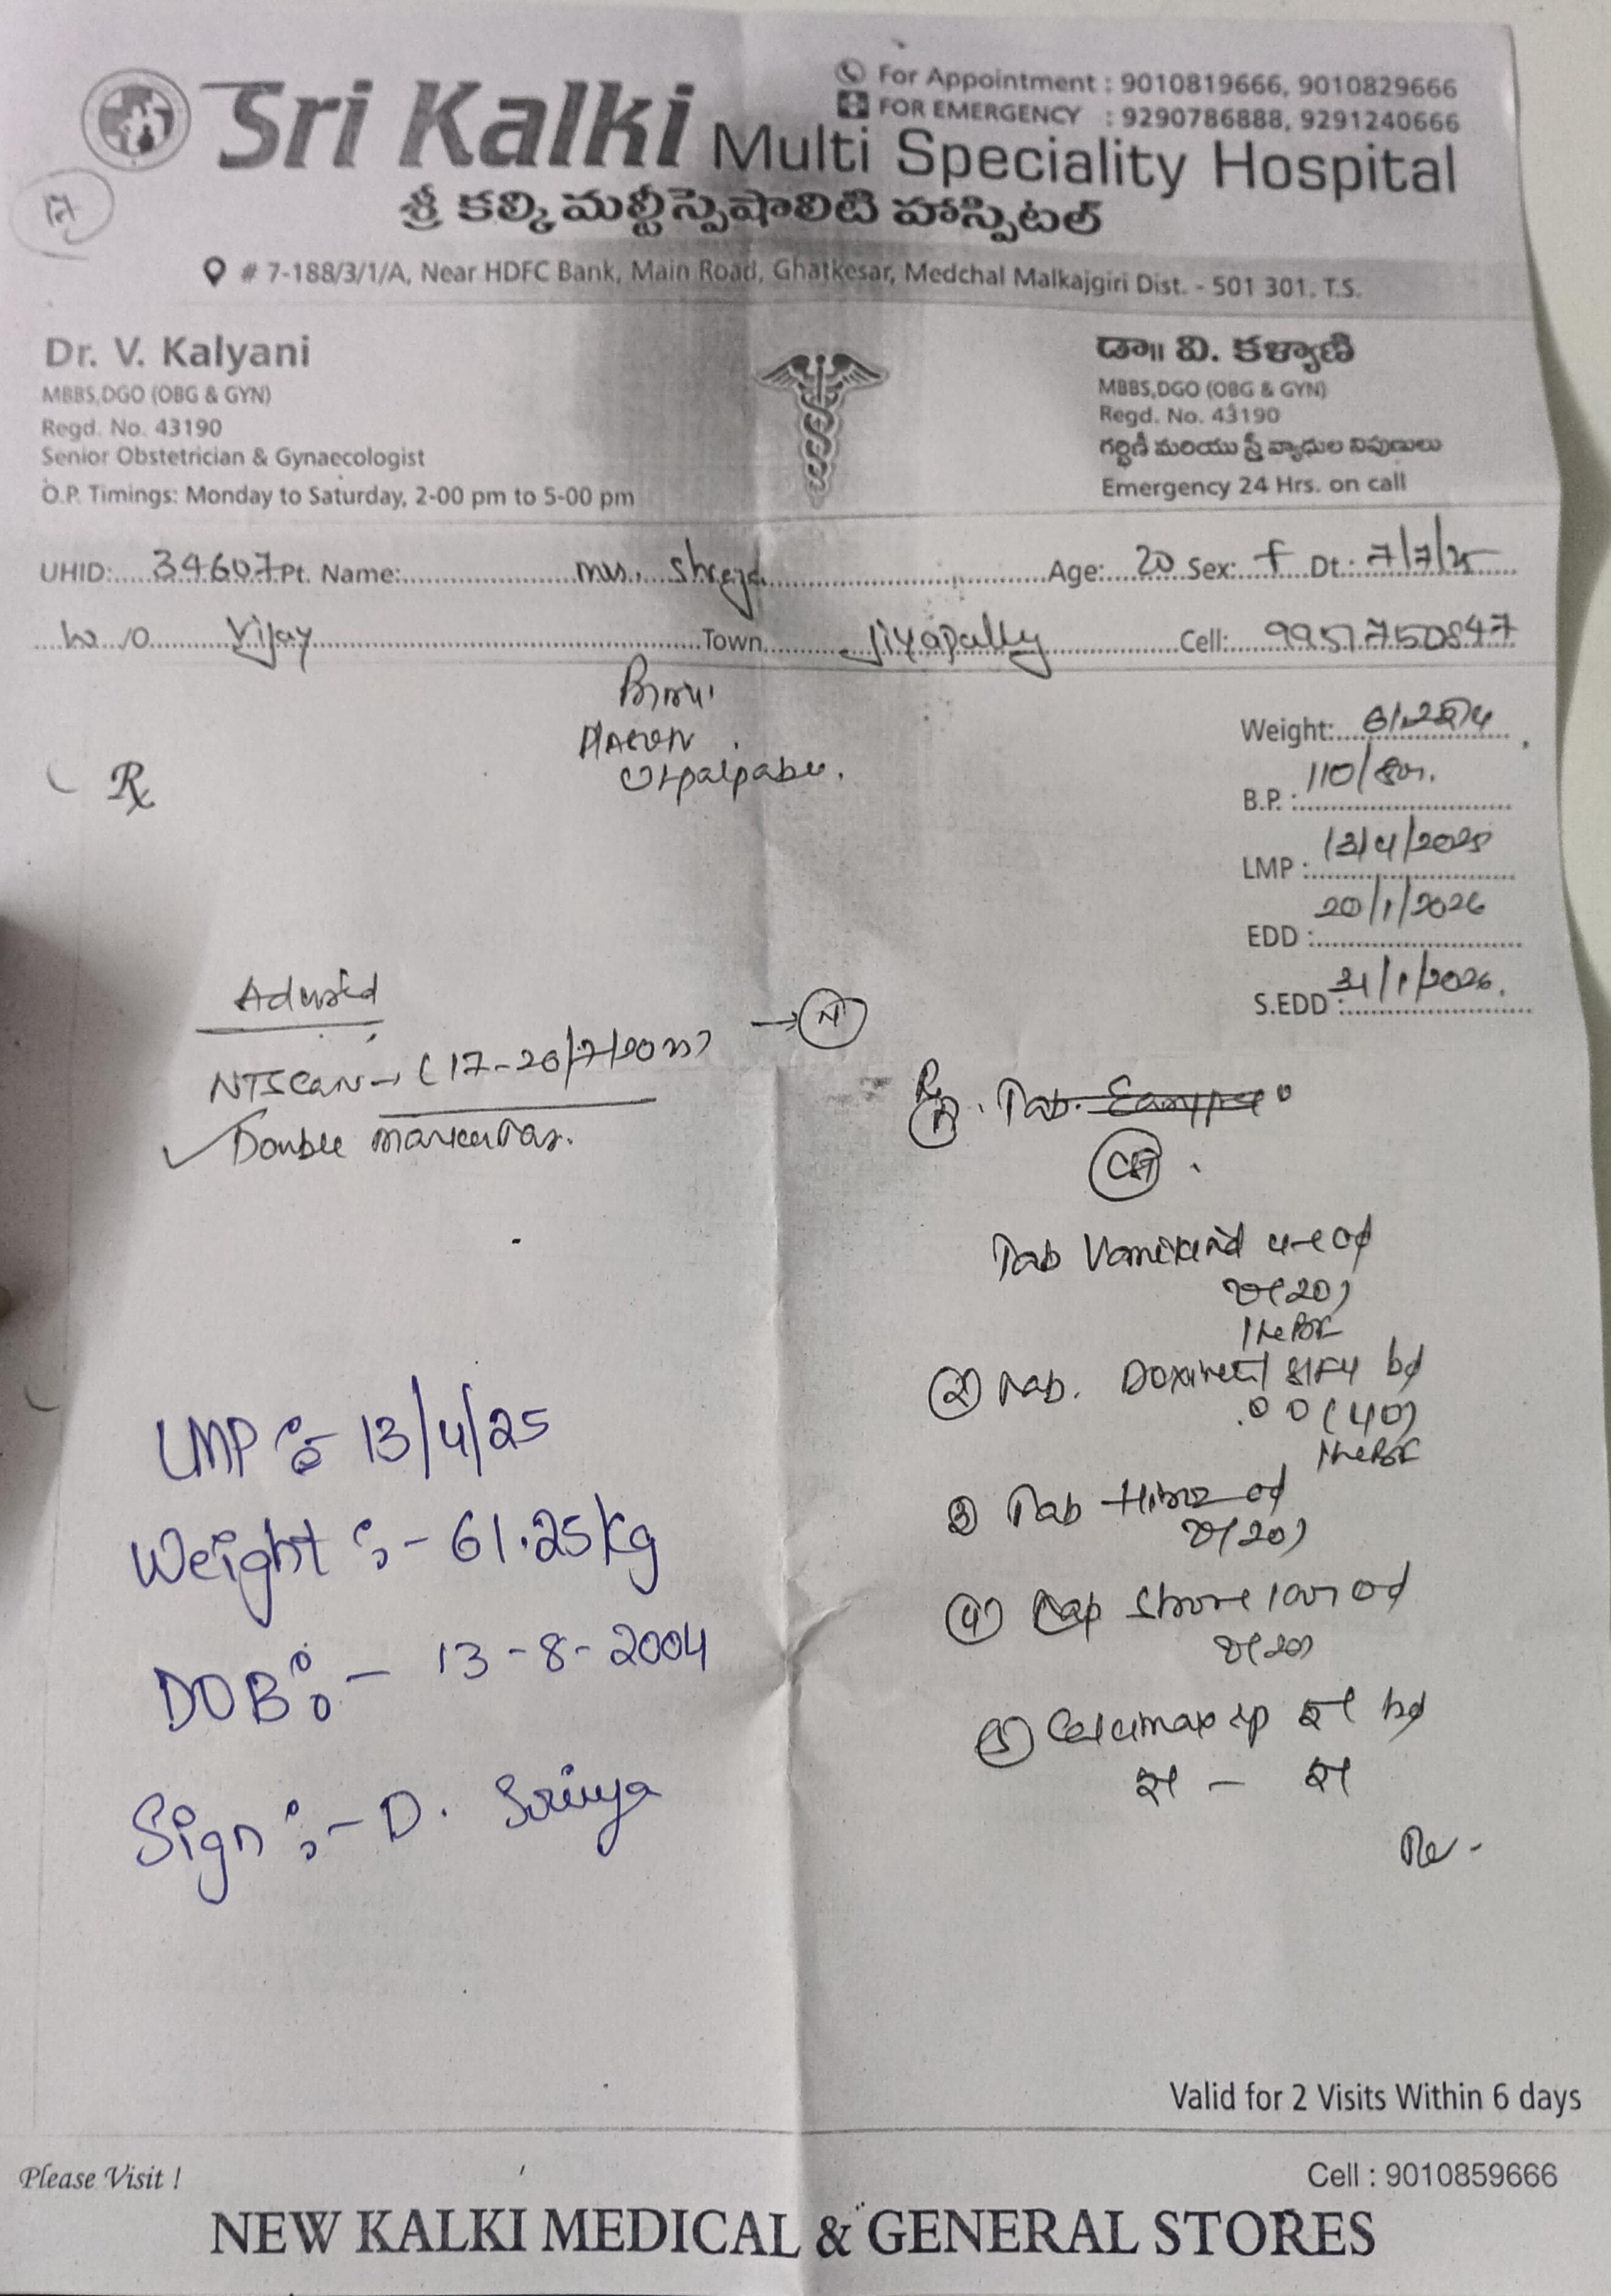 For Appointment : 9010819666, 9010829666
FOR EMERGENCY : 9290786888, 9291240666
Sri Kalki Multi Speciality Hospital
శ్రీ కల్కి మల్టీస్పెషాలిటి హాస్పిటల్
# 7-188/3/1/A, Near HDFC Bank, Main Road, Ghatkesar, Medchal Malkajgiri Dist. - 501 301. T.S.
Dr. V. Kalyani
MBBS,DGO (OBG & GYN)
Regd. No. 43190
Senior Obstetrician & Gynaecologist
O.P. Timings: Monday to Saturday, 2-00 pm to 5-00 pm
డా॥ వి. కళ్యాణి
MBBS,DGO (OBG & GYN)
Regd. No. 43190
గర్భిణీ మరియు స్త్రీ వ్యాధుల నిపుణులు
Emergency 24 Hrs. on call
UHID: 34607 Pt. Name: mrs. Age: 20 Sex: F Dt.: 7/7/25
W/O Vijay Town Cell: 9951750847
Weight:
B.P. : 110/80
LMP : 13/4/2025
EDD : 20/1/2026
S.EDD : /1/2026.
Rx
Advised
NT Scan → (17-20/7/2025) → N
Double marker
Rx Tab.
Tab od
(20)
② Tab. bd
(40)
③ Tab od
(20)
④ Cap od
(20)
⑤ Calcimax bd
LMP :- 13/4/25
Weight :- 61.25kg
DOB :- 13-8-2004
Sign :- D.
Valid for 2 Visits Within 6 days
Please Visit !
Cell : 9010859666
NEW KALKI MEDICAL & GENERAL STORES